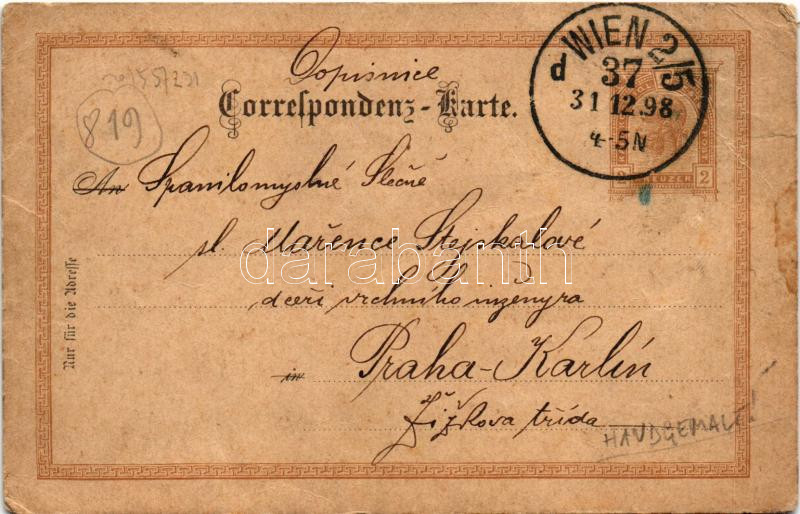 Dopisnice
Correspondenz-Karte.
WIEN 2/5
d 37
31 12.98
4-5N
819
2 KREUZER 2
An Spanilomyslné Slečně
sl. Mařence Stejskalové
dceři vrchního inženýra
in Praha-Karlín
Žižkova třída
Nur für die Adresse
HANDGEMALT!
darabanth